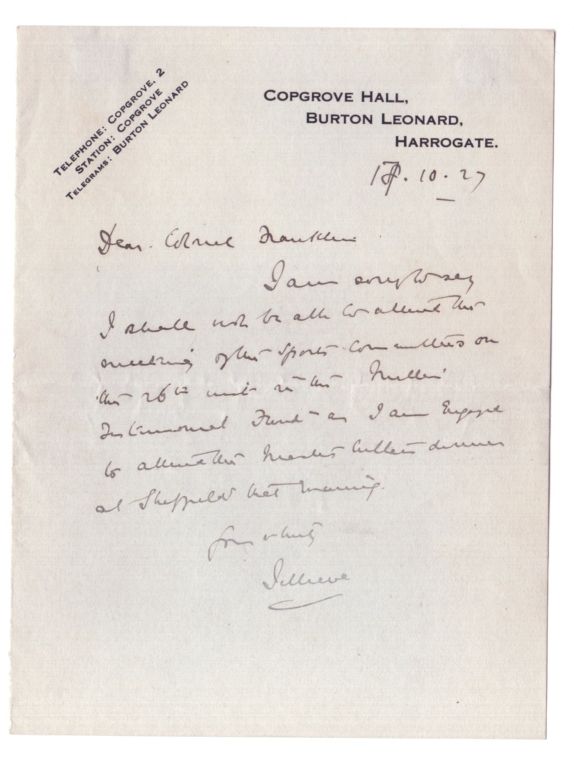 TELEPHONE: COPGROVE, 2
STATION: COPGROVE
TELEGRAMS: BURTON LEONARD
COPGROVE HALL,
BURTON LEONARD,
HARROGATE.
10.27
Dear Colonel Franklin
I am sorry to say
I shall not be able to attend this
meeting of the Sports Committee on
the 26th in the
Testimonial Fund as I am engaged
to attend the Master Cutlers dinner
at Sheffield that evening.
Yours truly